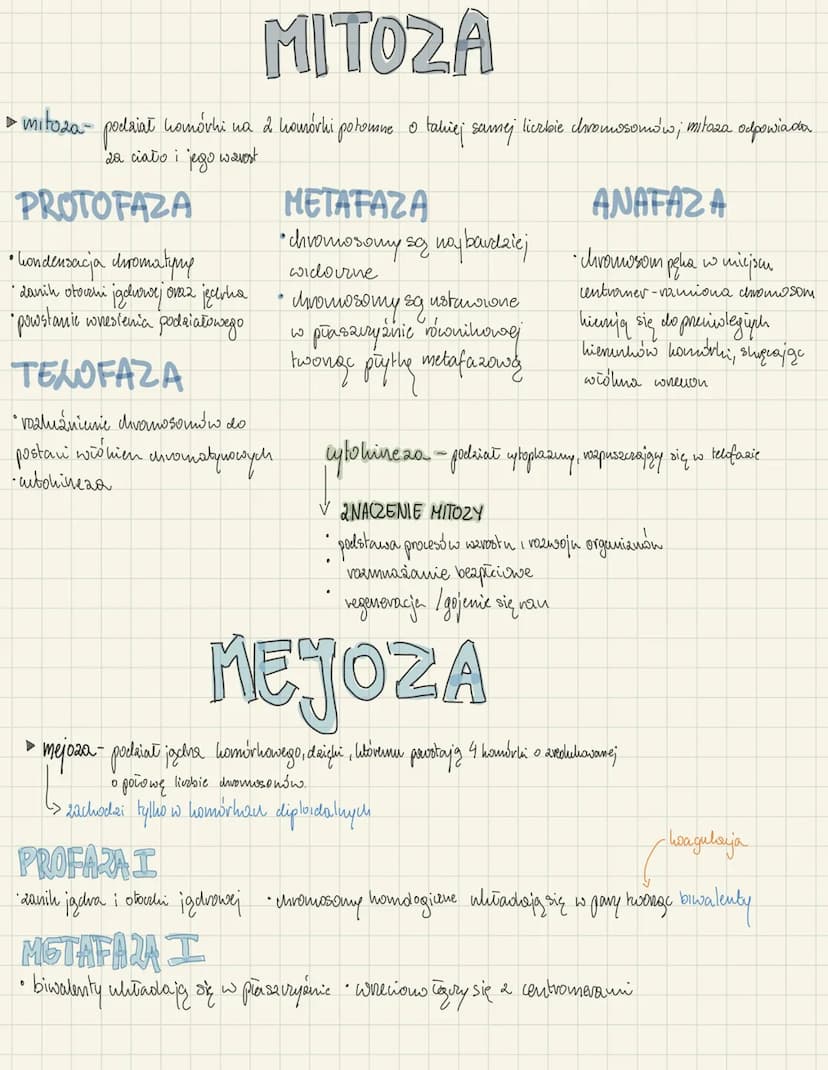 MITOZA
mitoza - podział komórki na 2 komórki potomne o takiej samej liczbie chromosomów; mitoza odpowiada
za ciało i jego wzrost
PROTOFAZA
• kondensacja chromatyny
• zanik otoczki jądrowej oraz jąderka
• powstanie wrzeciona podziałowego
METAFAZA
• chromosomy są najbardziej
widoczne
• chromosomy są ustawione
w płaszczyźnie równikowej
tworząc płytkę metafazową
ANAFAZA
• chromosom pęka w miejscu
centromer - ramiona chromosom
kierują się do przeciwległych
kierunków komórki, skręcając
włókna wrzecion
TELOFAZA
• rozluźnienie chromosomów do
postaci włókien chromatynowych
• cytokineza
cytokineza - podział cytoplazmy, rozpuszczający się w telofazie
ZNACZENIE MITOZY
• podstawa procesów wzrostu i rozwoju organizmów
• rozmnażanie bezpłciowe
• regeneracja / gojenie się ran
MEJOZA
mejoza - podział jądra komórkowego, dzięki, któremu powstają 4 komórki o zredukowanej
o połowę liczbie chromosomów.
zachodzi tylko w komórkach diploidalnych
koagulacja
PROFAZA I
• zanik jądra i otoczki jądrowej • chromosomy homologiczne układają się w pary tworząc biwalenty
METAFAZA I
• biwalenty układają się w płaszczyźnie • wrzeciono łączy się z centromerami